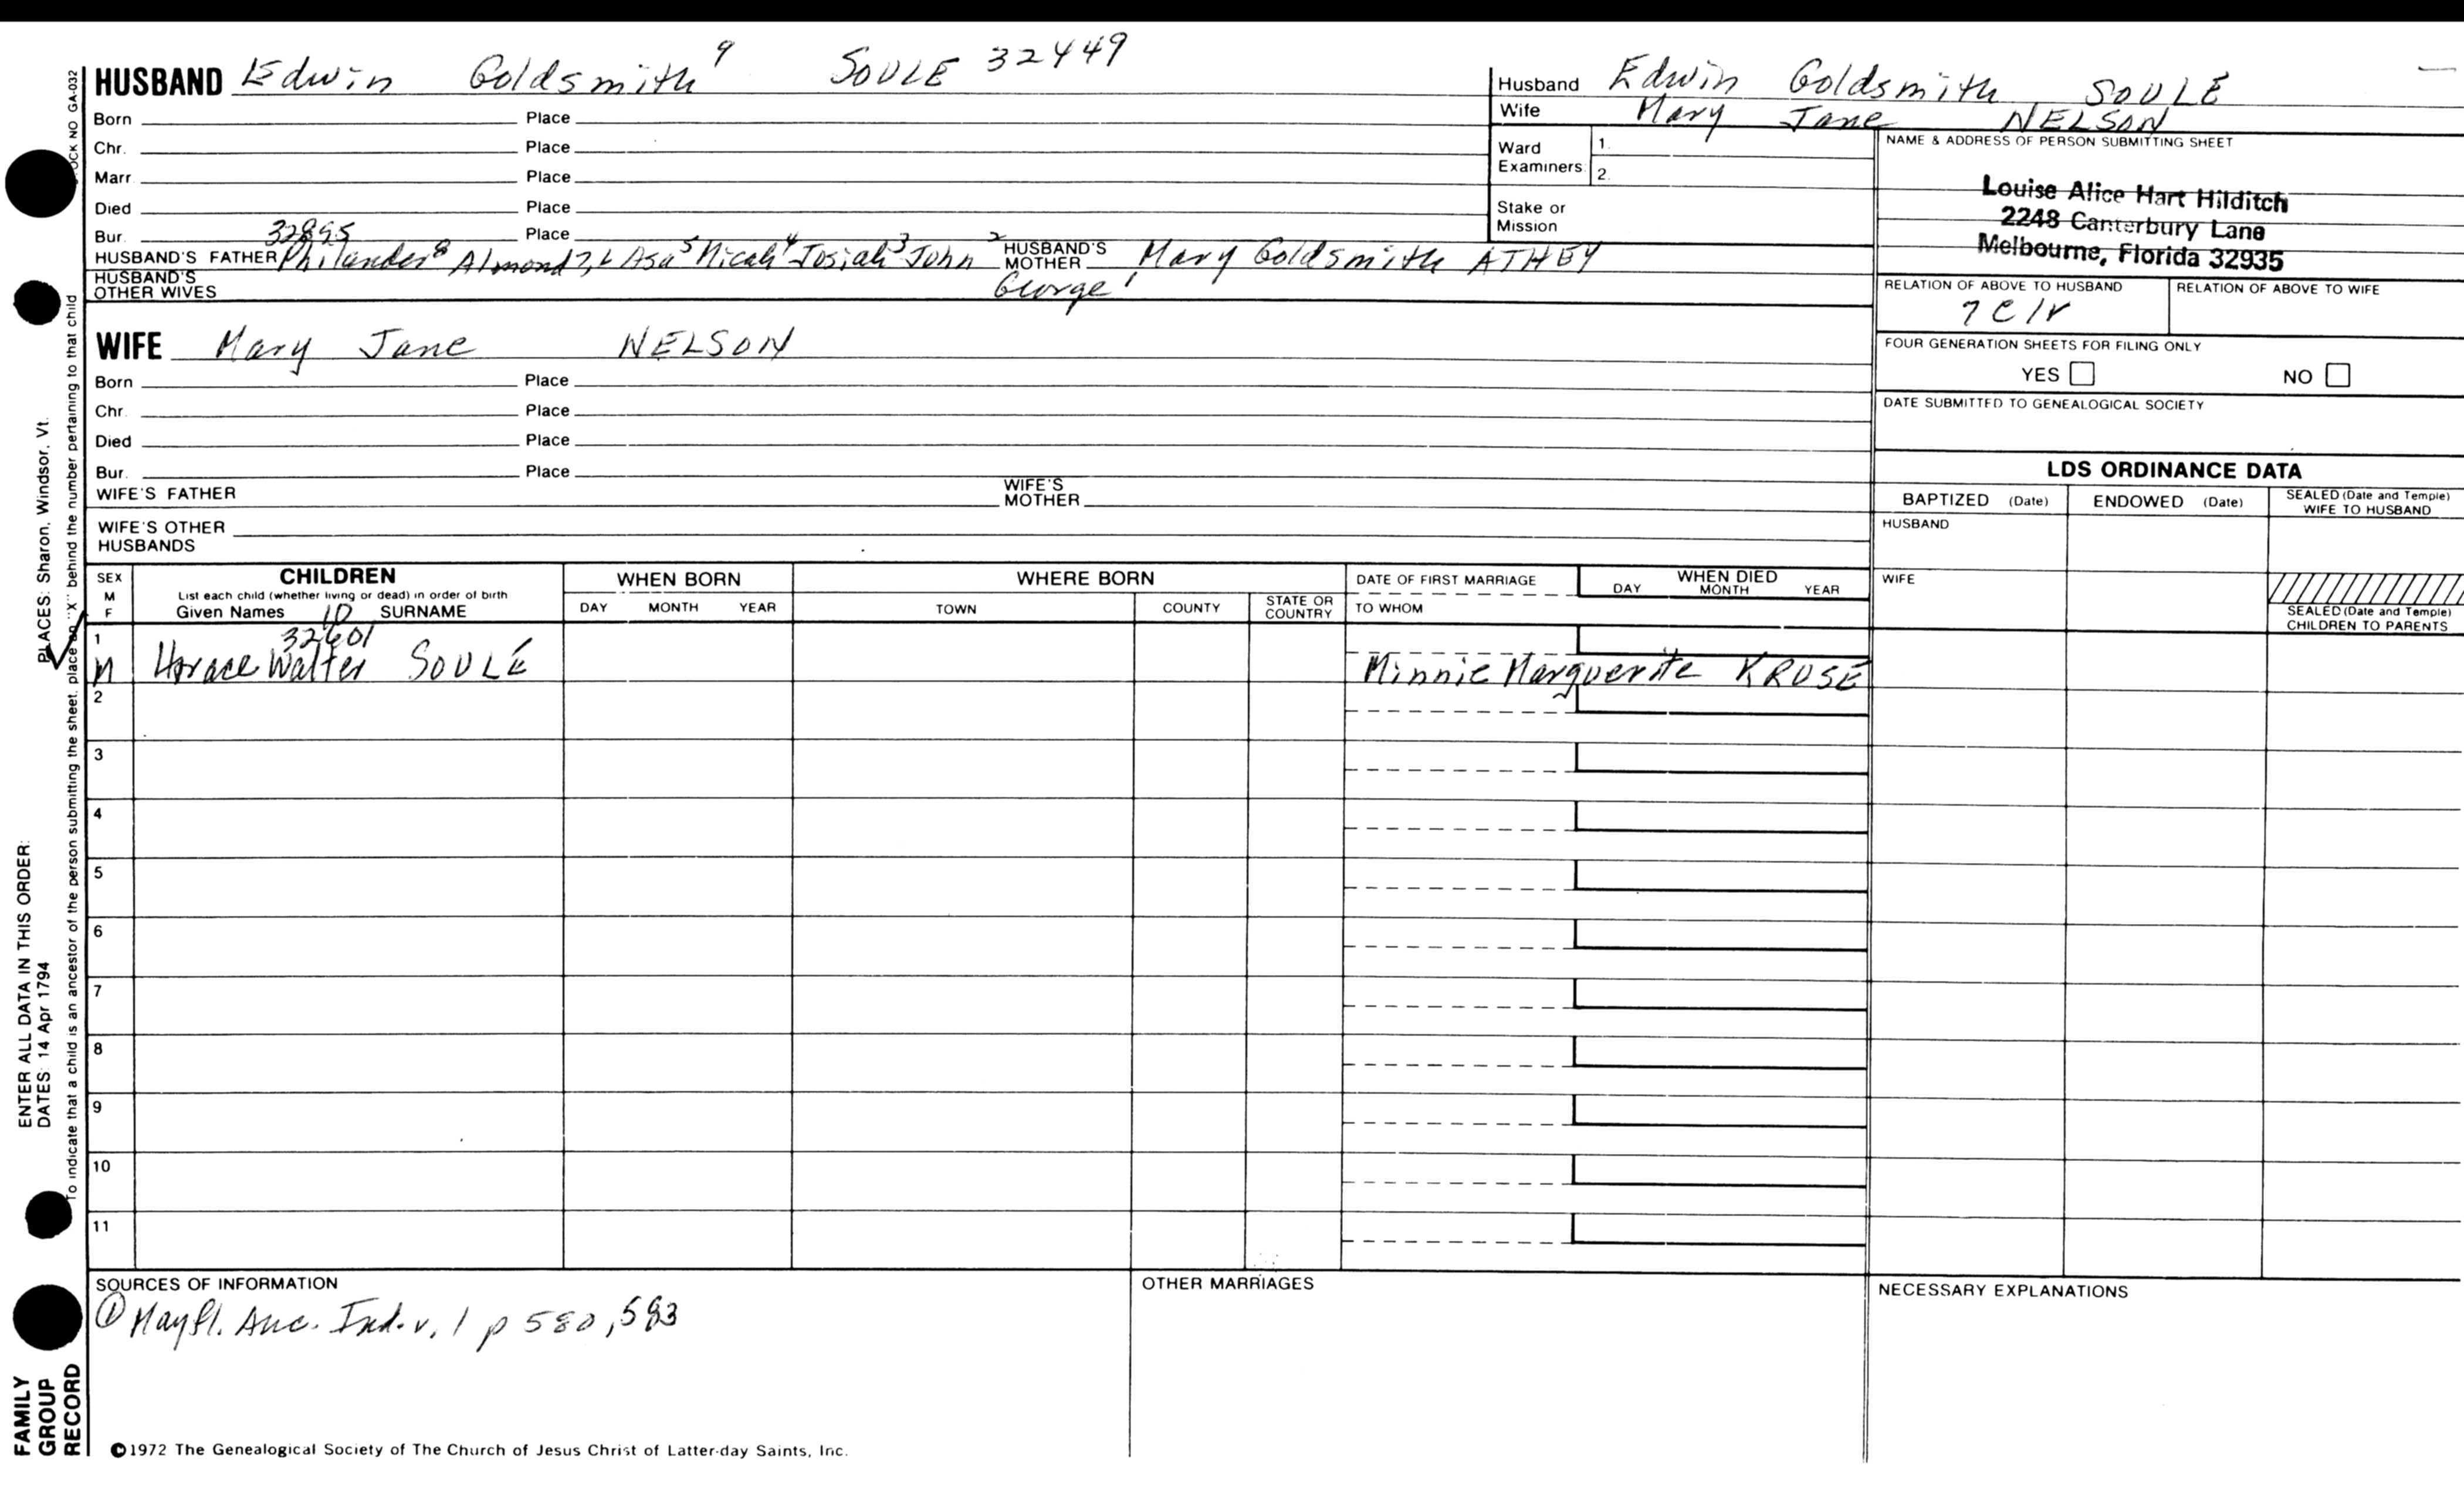 HUSBAND Edwin Goldsmith 9 SOULE 32449
Born Place
Chr. Place
Marr. Place
Died Place
Bur. Place
32895
HUSBAND'S FATHER Philander 8 Almond 7, 6 Asa 5 Micah 4 Josiah 3 John 2 HUSBAND'S MOTHER Mary Goldsmith ATHBY
George 1
HUSBAND'S OTHER WIVES
WIFE Mary Jane NELSON
Born Place
Chr. Place
Died Place
Bur. Place
WIFE'S FATHER WIFE'S MOTHER
WIFE'S OTHER HUSBANDS
Husband Edwin Goldsmith SOULE
Wife Mary Jane NELSON
Ward Examiners 1.
2.
Stake or Mission
NAME & ADDRESS OF PERSON SUBMITTING SHEET
Louise Alice Hart Hilditch
2248 Canterbury Lane
Melbourne, Florida 32935
RELATION OF ABOVE TO HUSBAND RELATION OF ABOVE TO WIFE
7 C 1r
FOUR GENERATION SHEETS FOR FILING ONLY
YES NO
DATE SUBMITTED TO GENEALOGICAL SOCIETY
LDS ORDINANCE DATA
BAPTIZED (Date) ENDOWED (Date) SEALED (Date and Temple) WIFE TO HUSBAND
HUSBAND
WIFE
SEALED (Date and Temple) CHILDREN TO PARENTS
SEX M F
CHILDREN
List each child (whether living or dead) in order of birth
Given Names 10 SURNAME
WHEN BORN
DAY MONTH YEAR
WHERE BORN
TOWN COUNTY STATE OR COUNTRY
DATE OF FIRST MARRIAGE
TO WHOM
WHEN DIED
DAY MONTH YEAR
1
32601
M Horace Walter SOULE Minnie Marguerite KRUSE
2
3
4
5
6
7
8
9
10
11
SOURCES OF INFORMATION
① Mayfl. Anc. Ind. v. 1 p 580, 583
OTHER MARRIAGES
NECESSARY EXPLANATIONS
©1972 The Genealogical Society of The Church of Jesus Christ of Latter-day Saints, Inc.
FAMILY GROUP RECORD
ENTER ALL DATA IN THIS ORDER:
DATES: 14 Apr 1794
PLACES: Sharon, Windsor, Vt.
To indicate that a child is an ancestor of the person submitting the sheet, place an "X" behind the number pertaining to that child
NO GA-032